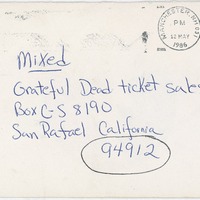 MANCHESTER, NH 03
PM
12 MAY
1986
Mixed
Grateful Dead ticket sales
Box C-S 8190
San Rafael California
94912